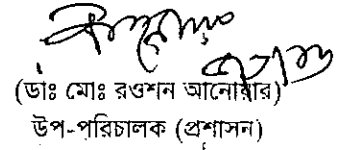 (ডাঃ মোঃ রওশন আনোয়ার)
উপ-পরিচালক (প্রশাসন)